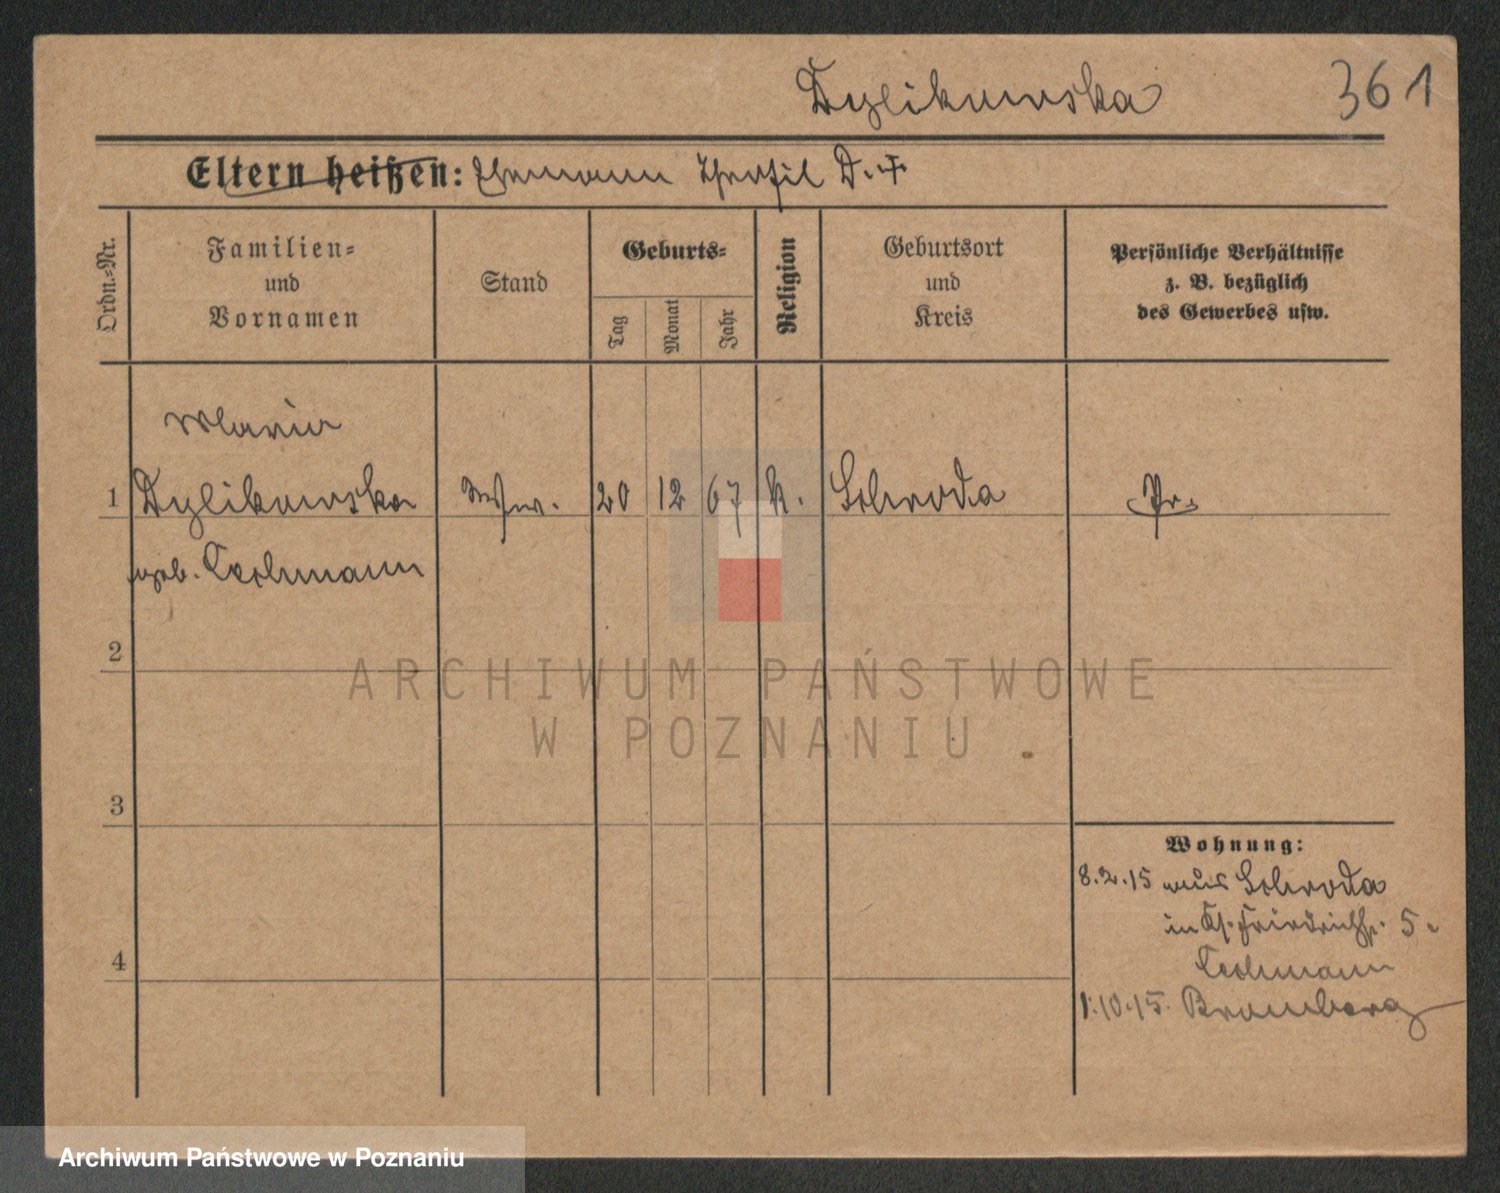 Dylikowska 361
Eltern heißen: Ehemann Theofil D. †
Ordn.=Nr.
Familien=
und
Vornamen
Stand
Geburts=
Tag
Monat
Jahr
Religion
Geburtsort
und
Kreis
Persönliche Verhältnisse
z. B. bezüglich
des Gewerbes usw.
Maria
1 Dylikowska Wwe. 20 12 67 k. Schroda Pr.
geb.
2
ARCHIWUM PAŃSTWOWE
W POZNANIU
3
Wohnung:
8.2.15 aus Schroda
in 5.
4
1.10.15. Bromberg
Archiwum Państwowe w Poznaniu